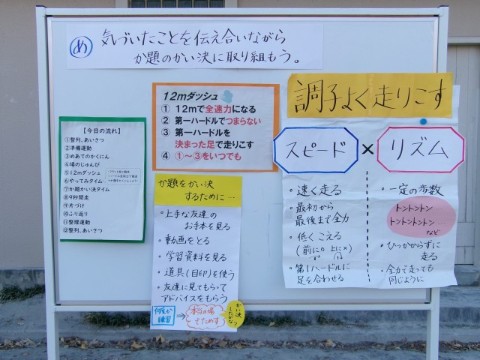 め
気づいたことを伝え合いながら
か題のかい決に取り組もう。
【今日の流れ】
①整列、あいさつ
②準備運動
③めあてのかくにん
④場のじゅんび
⑤12mダッシュ
⑥やってみタイム
⑦か題かい決タイム
⑩ふり返り
⑪整理運動
⑫整列、あいさつ
12mダッシュ
① 12mで全速力になる
② 第一ハードルでつまらない
③ 第一ハードルを
決まった足で走りこす
④ ①～③をいつでも
か題をかい決
するために…
・上手な友達の
お手本を見る
・動画をとる
・学習資料を見る
・道具(目印)を使う
・友達に見てもらって
アドバイスをもらう
調子よく走りこす
スピード × リズム
・速く走る
・最初から
最後まで全力
・低くこえる
(前に○ 上に×)
・第1ハードルに
足を合わせる
・一定の歩数
トントントン
トントントントン
など
・ひっかからずに
走る
・全力で走っても
同じように